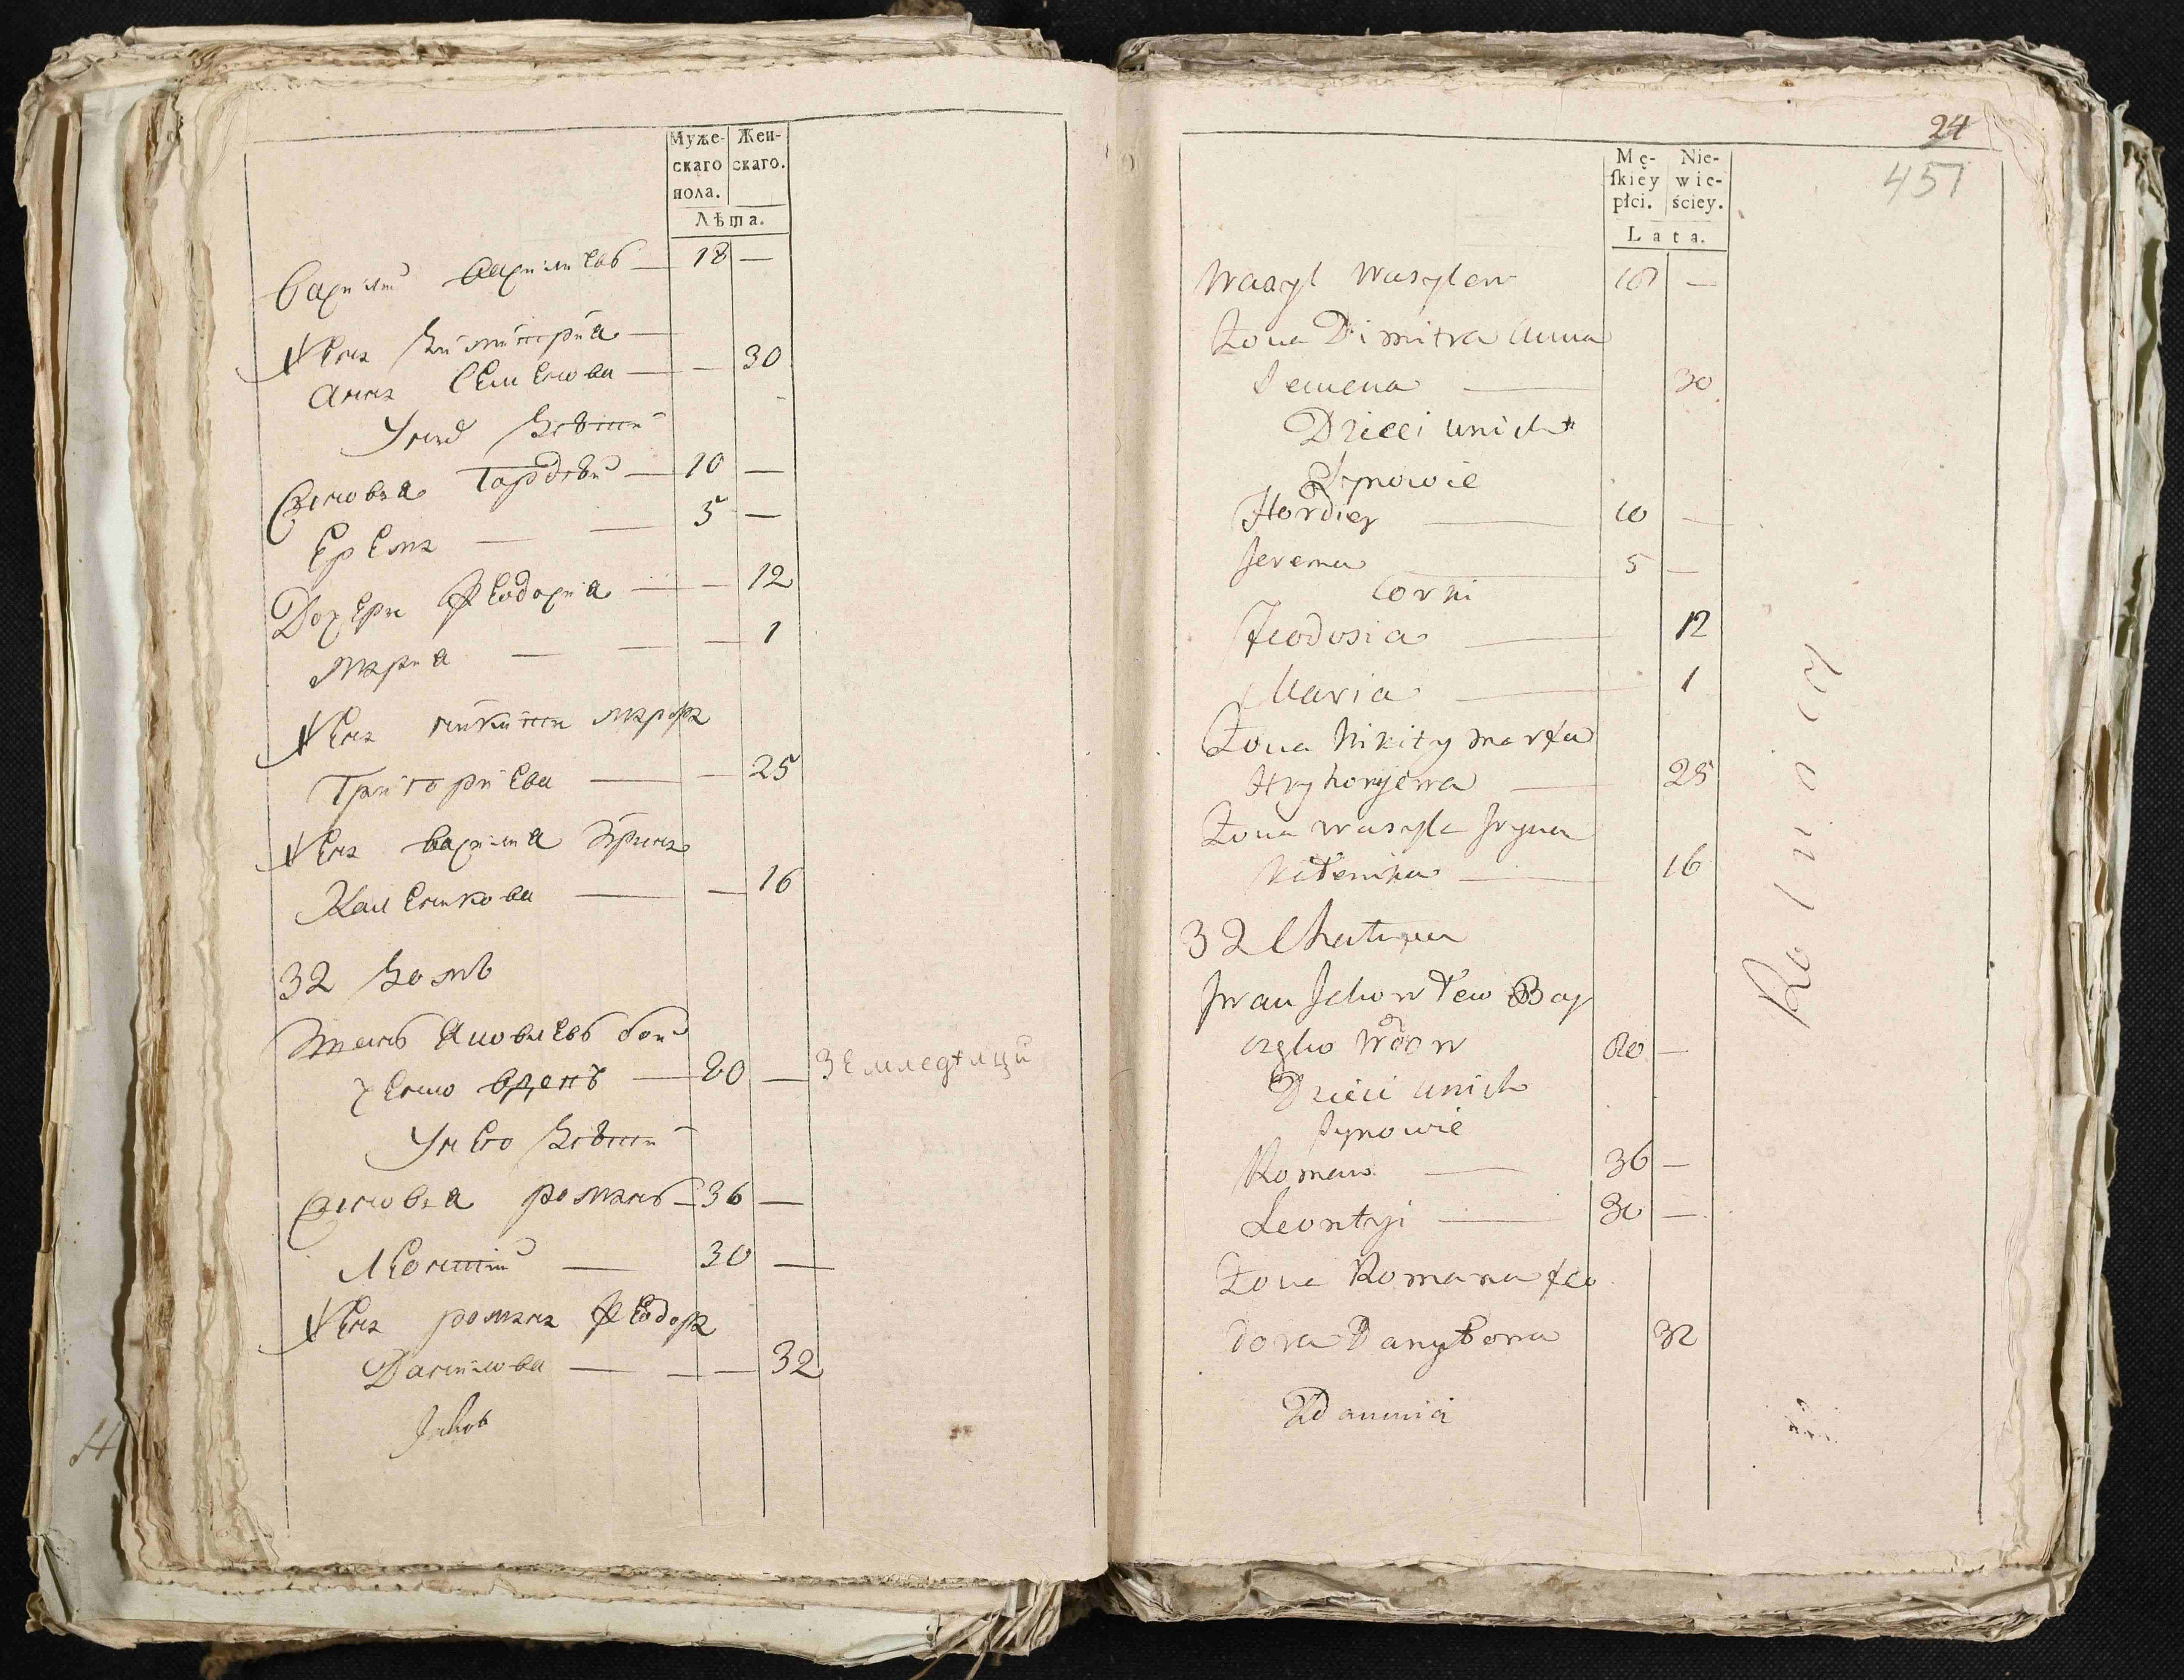 Муже- Жен-
скаго скаго.
пола.
Лѣта.
Василий Васильевъ — 18 —
Жена Димитрия —
Анна Семенова — — 30
У них дѣти
Сыновья Гордѣй — 10 —
Ерема — — 5 —
Дочери Феодосия — — 12
Мария — — — 1
Жена Никити Марфа
Григориева — — 25
Жена Василия Ирина
Каленикова — — 16
32 Домъ
Иванъ Яковлевъ Бой
ченко вдовъ — 80 — Земледѣлци
У него дѣти
Сыновья Романъ — 36 —
Леонтий — 30 —
Жена Романа Феодора
Данилова — — — 32
Jakob
24
451
Mę- Nie-
ſkiey wie-
płci. ściey.
Lata.
Wasyl Wasylew 18 —
Żona Dimitra Anna
Semena — 30
Dzieci u nich
Synowie
Hordiey — 10 —
Jerema — 5 —
Corki
Feodosia — 12
Maria — 1
Żona Nikity Marfa
Hryhoryjewa — 25
Żona Wasyla Jryna
Kalenika — 16
32 Chatupa
Jwan Jakowlew Boy
częko Wdow 80 —
Dzieci u nich
Synowie
Roman — 36 —
Leontyi — 30 —
Żona Romana Feo
dora Danyłowa 32
Rolnicy